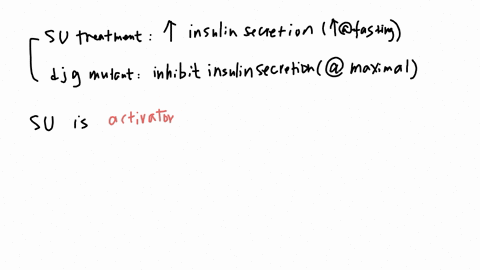 SU treatment: ↑ insulin secretion (↑@fasting)
djg mutant: inhibit insulin secretion (@ maximal)
SU is activator